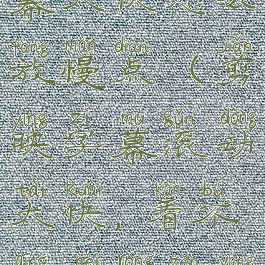 fàng màn diǎn jiǎn
放慢点（剪
yìng zì mù gǔn dòng
映字幕滚动
tài kuài kàn bù
太快，看不